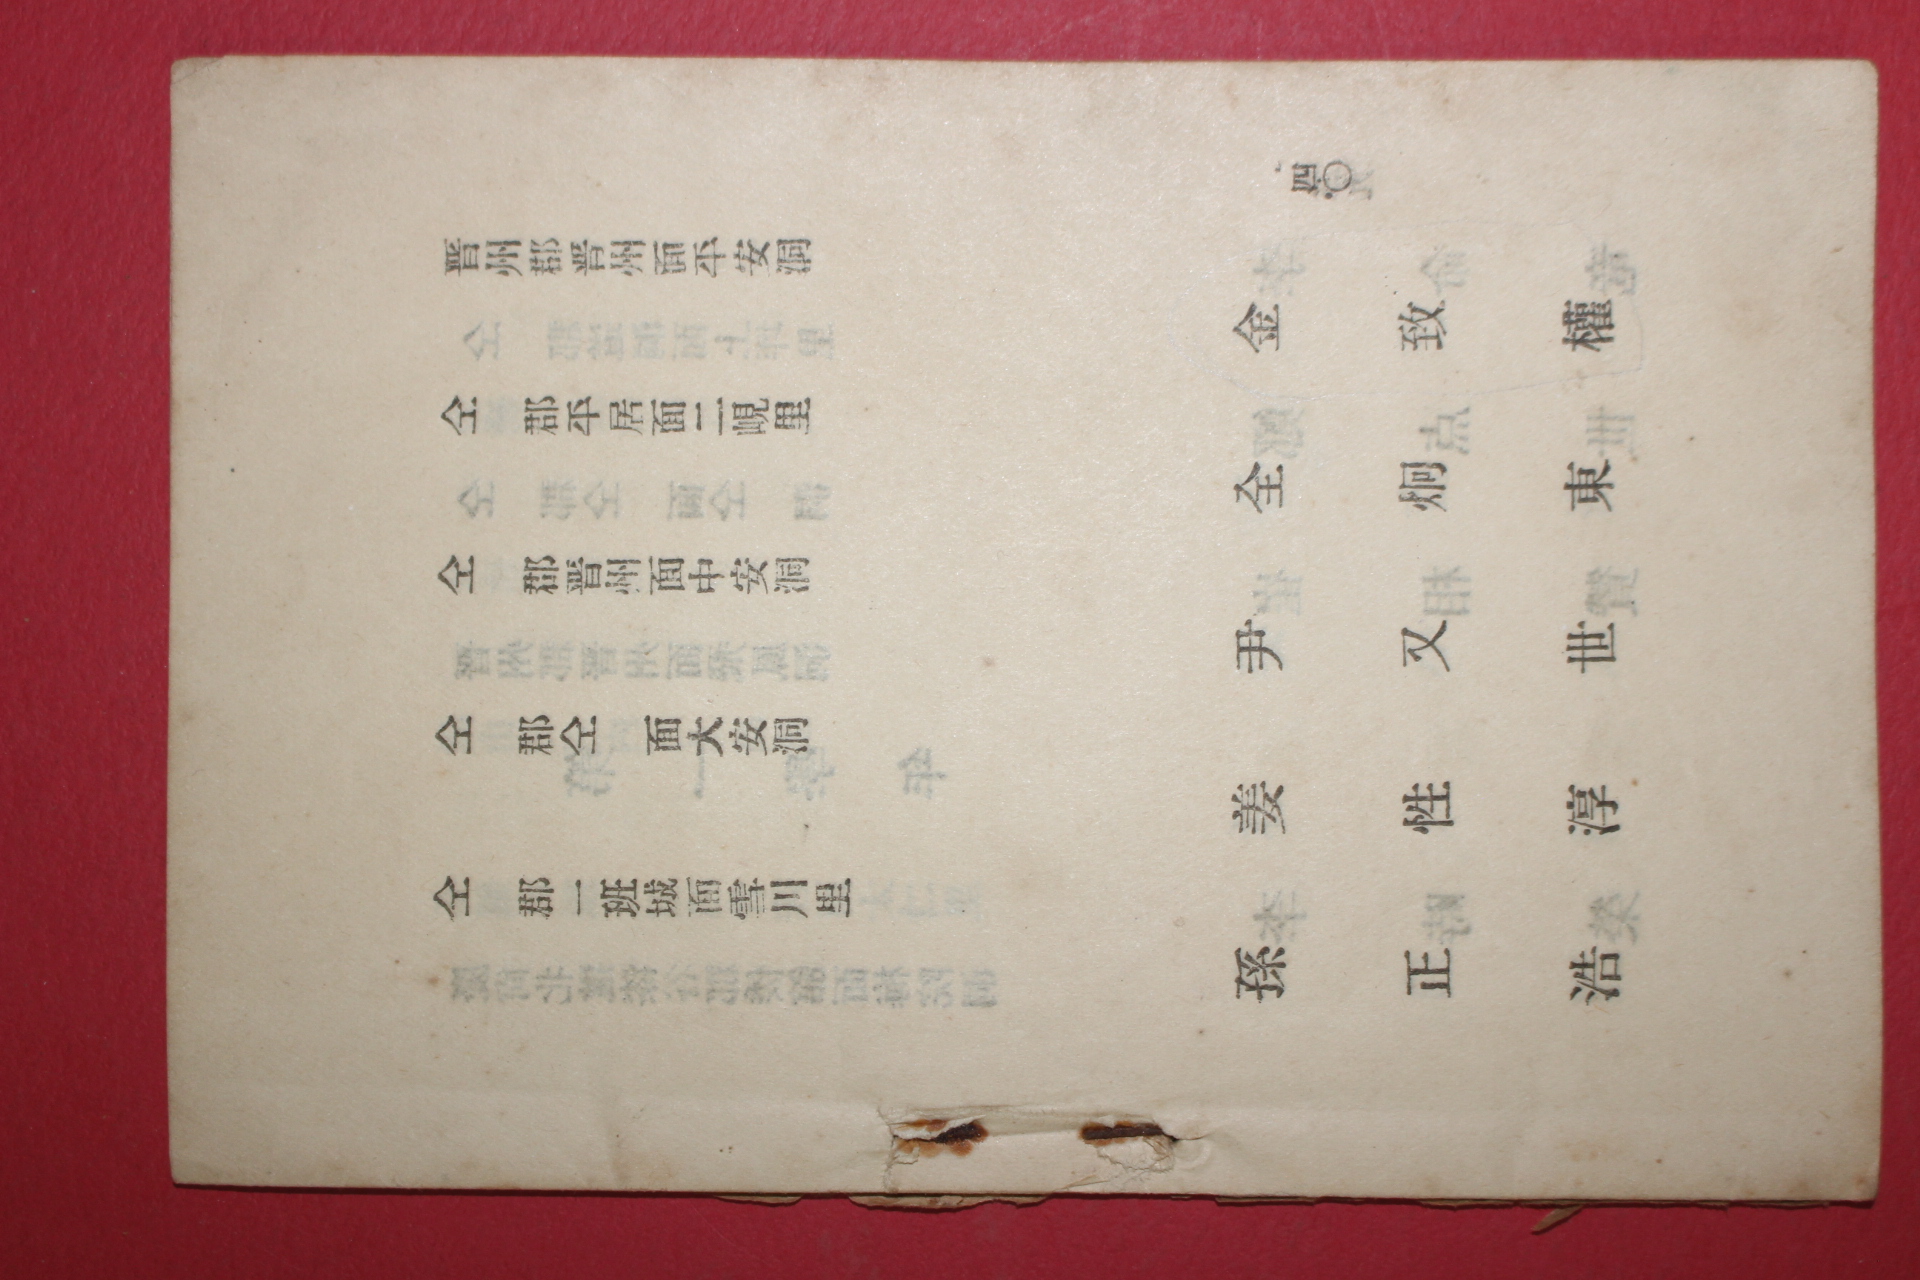 四〇
晋州郡晋州面平安洞
金致權
仝 郡平居面二峴里
全炯東
仝 郡晋州面中安洞
尹又世
仝 郡仝 面大安洞
姜性淳
仝 郡一班城面雪川里
孫正浩